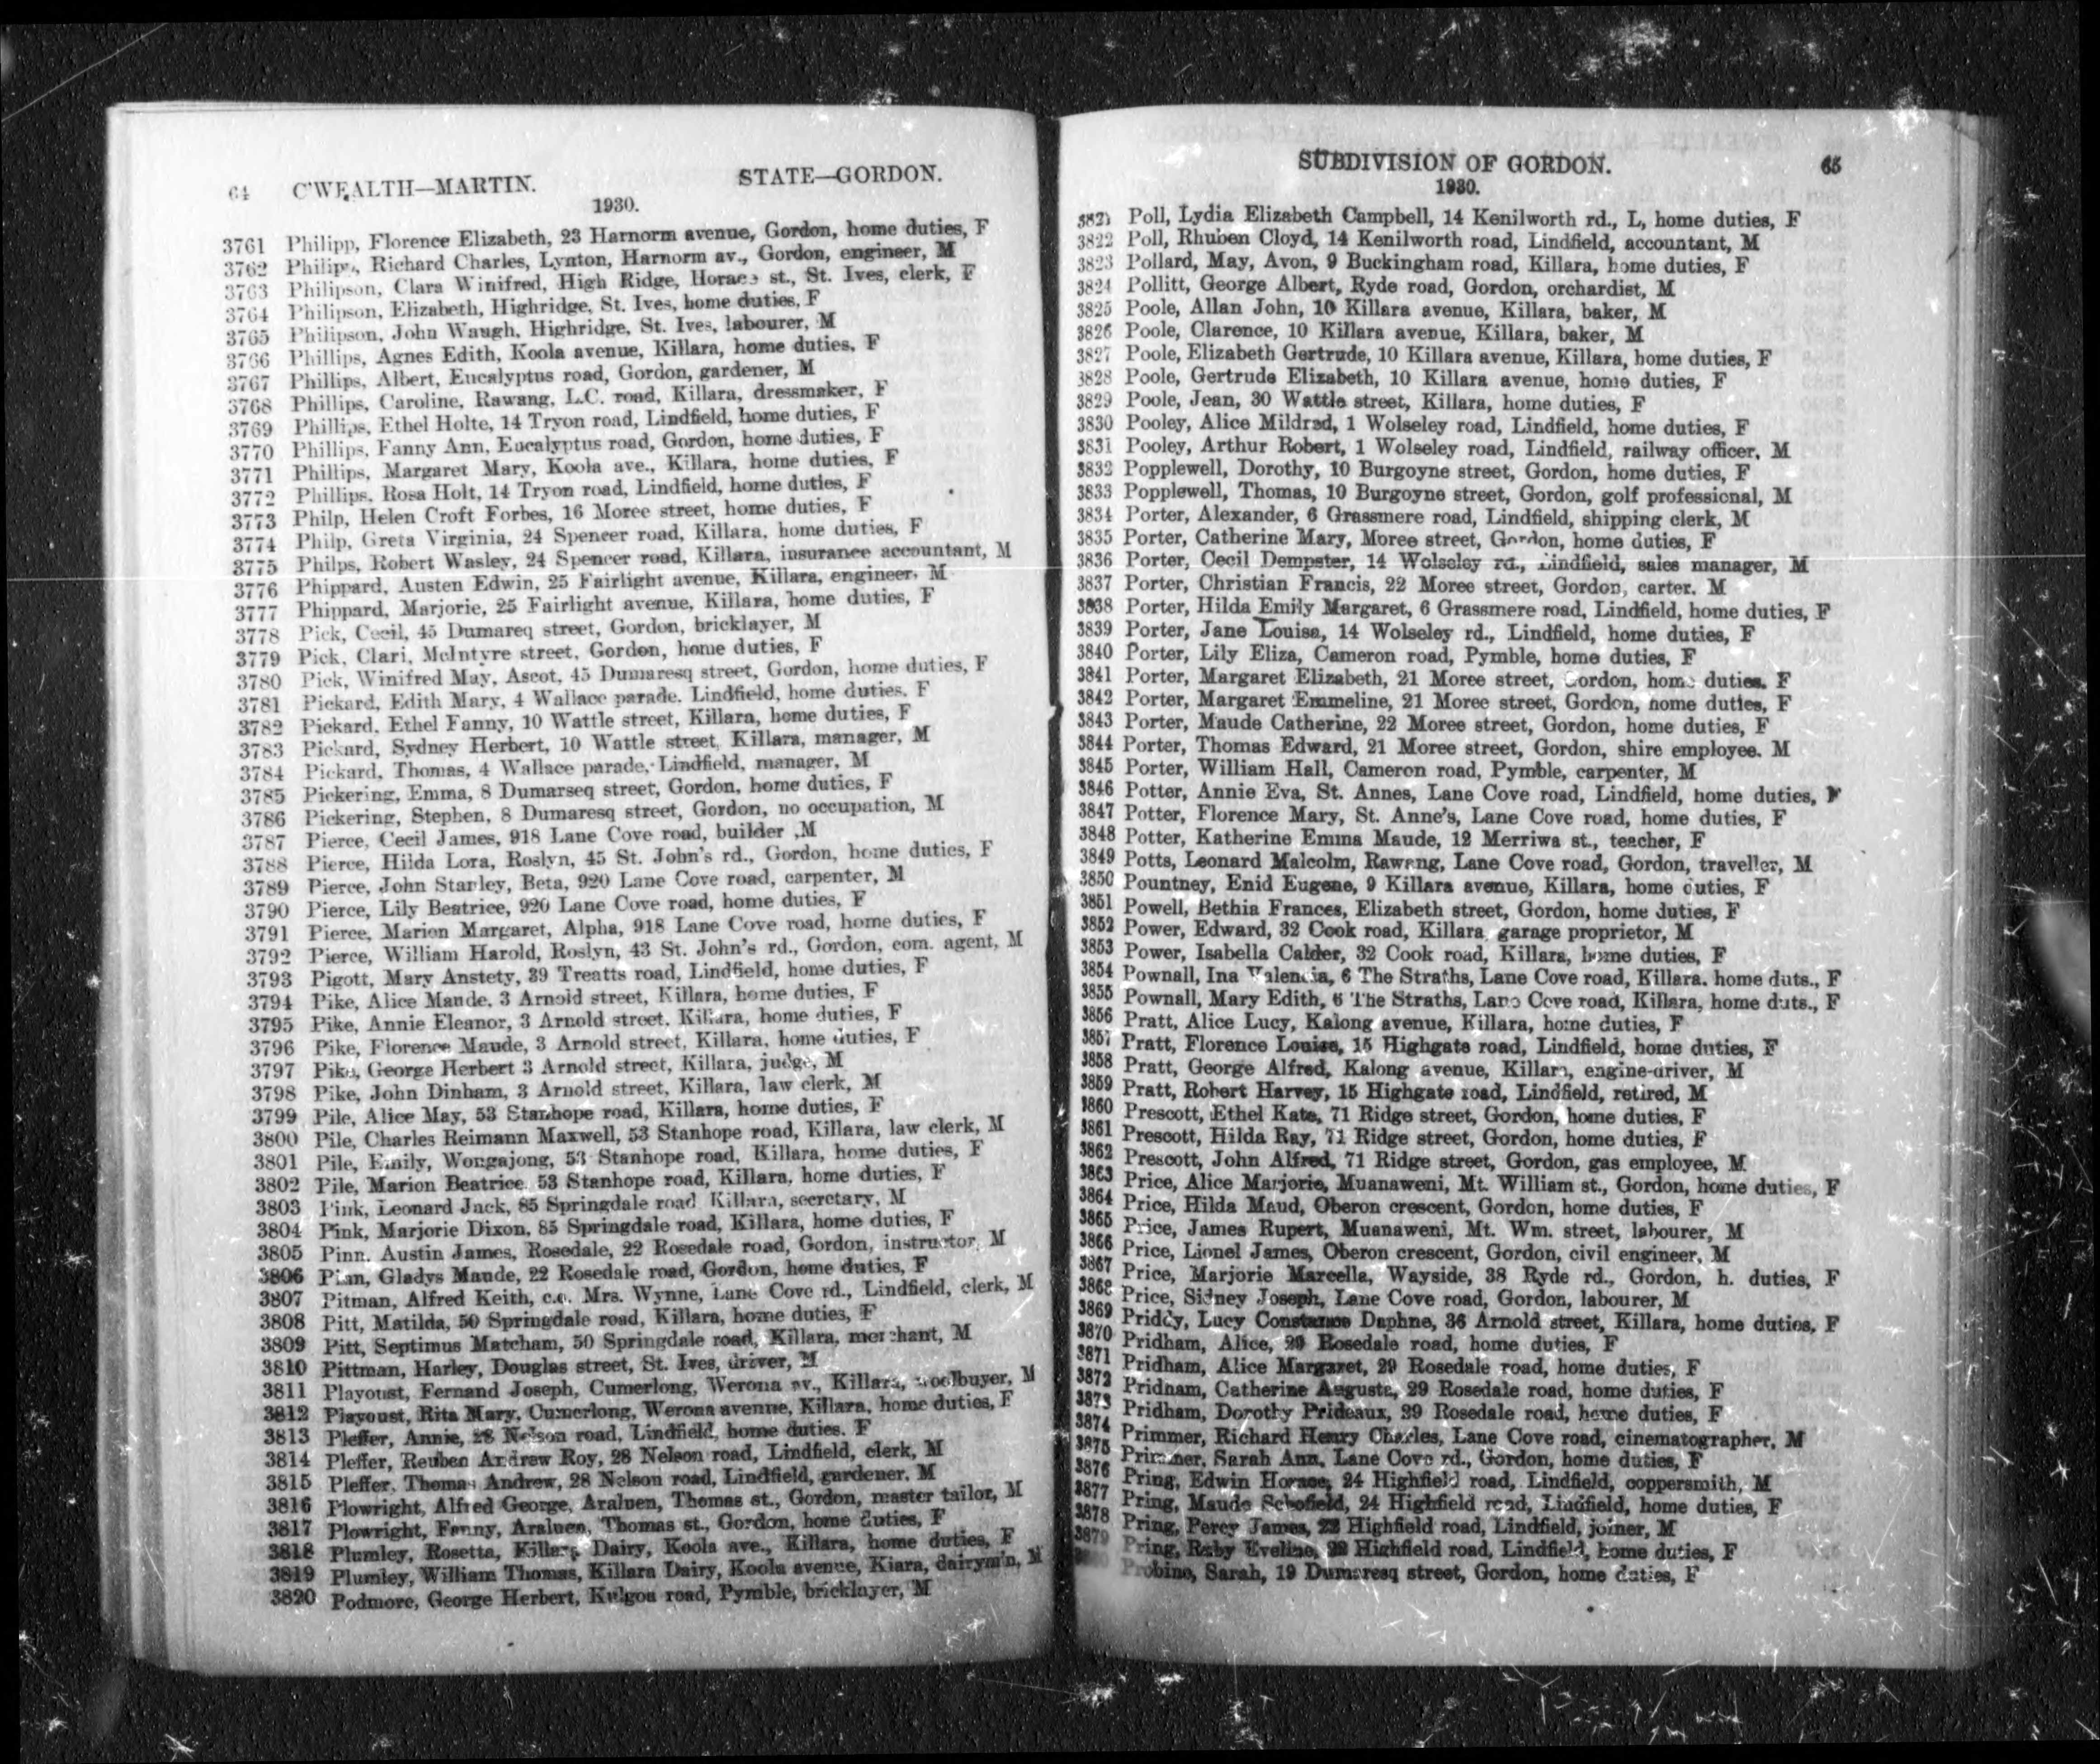 64 C'WEALTH—MARTIN. STATE—GORDON.
1930.
3761 Philipp, Florence Elizabeth, 23 Harnorm avenue, Gordon, home duties, F
3762 Philips, Richard Charles, Lynton, Harnorm av., Gordon, engineer, M
3763 Philipson, Clara Winifred, High Ridge, Horace st., St. Ives, clerk, F
3764 Philipson, Elizabeth, Highridge, St. Ives, home duties, F
3765 Philipson, John Waugh, Highridge, St. Ives, labourer, M
3766 Phillips, Agnes Edith, Koola avenue, Killara, home duties, F
3767 Phillips, Albert, Eucalyptus road, Gordon, gardener, M
3768 Phillips, Caroline, Rawang, L.C. road, Killara, dressmaker, F
3769 Phillips, Ethel Holte, 14 Tryon road, Lindfield, home duties, F
3770 Phillips, Fanny Ann, Eucalyptus road, Gordon, home duties, F
3771 Phillips, Margaret Mary, Koola ave., Killara, home duties, F
3772 Phillips, Rosa Holt, 14 Tryon road, Lindfield, home duties, F
3773 Philp, Helen Croft Forbes, 16 Moree street, home duties, F
3774 Philp, Greta Virginia, 24 Spencer road, Killara, home duties, F
3775 Philps, Robert Wasley, 24 Spencer road, Killara, insurance accountant, M
3776 Phippard, Austen Edwin, 25 Fairlight avenue, Killara, engineer, M
3777 Phippard, Marjorie, 25 Fairlight avenue, Killara, home duties, F
3778 Pick, Cecil, 45 Dumareq street, Gordon, bricklayer, M
3779 Pick, Clari, McIntyre street, Gordon, home duties, F
3780 Pick, Winifred May, Ascot, 45 Dumaresq street, Gordon, home duties, F
3781 Pickard, Edith Mary, 4 Wallace parade, Lindfield, home duties, F
3782 Pickard, Ethel Fanny, 10 Wattle street, Killara, home duties, F
3783 Pickard, Sydney Herbert, 10 Wattle street, Killara, manager, M
3784 Pickard, Thomas, 4 Wallace parade, Lindfield, manager, M
3785 Pickering, Emma, 8 Dumarseq street, Gordon, home duties, F
3786 Pickering, Stephen, 8 Dumaresq street, Gordon, no occupation, M
3787 Pierce, Cecil James, 918 Lane Cove road, builder ,M
3788 Pierce, Hilda Lora, Roslyn, 45 St. John's rd., Gordon, home duties, F
3789 Pierce, John Stanley, Beta, 920 Lane Cove road, carpenter, M
3790 Pierce, Lily Beatrice, 920 Lane Cove road, home duties, F
3791 Pierce, Marion Margaret, Alpha, 918 Lane Cove road, home duties, F
3792 Pierce, William Harold, Roslyn, 43 St. John's rd., Gordon, com. agent, M
3793 Pigott, Mary Anstety, 39 Treatts road, Lindfield, home duties, F
3794 Pike, Alice Maude, 3 Arnold street, Killara, home duties, F
3795 Pike, Annie Eleanor, 3 Arnold street, Killara, home duties, F
3796 Pike, Florence Maude, 3 Arnold street, Killara, home duties, F
3797 Pike, George Herbert 3 Arnold street, Killara, judge, M
3798 Pike, John Dinham, 3 Arnold street, Killara, law clerk, M
3799 Pile, Alice May, 53 Stanhope road, Killara, home duties, F
3800 Pile, Charles Reimann Maxwell, 53 Stanhope road, Killara, law clerk, M
3801 Pile, Emily, Wongajong, 53 Stanhope road, Killara, home duties, F
3802 Pile, Marion Beatrice, 53 Stanhope road, Killara, home duties, F
3803 Pink, Leonard Jack, 85 Springdale road Killara, secretary, M
3804 Pink, Marjorie Dixon, 85 Springdale road, Killara, home duties, F
3805 Pinn, Austin James, Rosedale, 22 Rosedale road, Gordon, instructor, M
3806 Pinn, Gladys Maude, 22 Rosedale road, Gordon, home duties, F
3807 Pitman, Alfred Keith, c.o. Mrs. Wynne, Lane Cove rd., Lindfield, clerk, M
3808 Pitt, Matilda, 50 Springdale road, Killara, home duties, F
3809 Pitt, Septimus Matcham, 50 Springdale road, Killara, merchant, M
3810 Pittman, Harley, Douglas street, St. Ives, driver, M
3811 Playoust, Fernand Joseph, Cumerlong, Werona av., Killara, woolbuyer, M
3812 Playoust, Rita Mary, Cumerlong, Werona avenue, Killara, home duties, F
3813 Pleffer, Annie, 28 Nelson road, Lindfield, home duties. F
3814 Pleffer, Reuben Andrew Roy, 28 Nelson road, Lindfield, clerk, M
3815 Pleffer, Thomas Andrew, 28 Nelson road, Lindfield, gardener, M
3816 Plowright, Alfred George, Araluen, Thomas st., Gordon, master tailor, M
3817 Plowright, Fanny, Araluen, Thomas st., Gordon, home duties, F
3818 Plumley, Rosetta, Killara Dairy, Koola ave., Killara, home duties, F
3819 Plumley, William Thomas, Killara Dairy, Koola avenue, Kiara, dairym'n, M
3820 Podmore, George Herbert, Kulgoa road, Pymble, bricklayer, M
SUBDIVISION OF GORDON. 65
1930.
3821 Poll, Lydia Elizabeth Campbell, 14 Kenilworth rd., L, home duties, F
3822 Poll, Rhuben Cloyd, 14 Kenilworth road, Lindfield, accountant, M
3823 Pollard, May, Avon, 9 Buckingham road, Killara, home duties, F
3824 Pollitt, George Albert, Ryde road, Gordon, orchardist, M
3825 Poole, Allan John, 10 Killara avenue, Killara, baker, M
3826 Poole, Clarence, 10 Killara avenue, Killara, baker, M
3827 Poole, Elizabeth Gertrude, 10 Killara avenue, Killara, home duties, F
3828 Poole, Gertrude Elizabeth, 10 Killara avenue, home duties, F
3829 Poole, Jean, 30 Wattle street, Killara, home duties, F
3830 Pooley, Alice Mildred, 1 Wolseley road, Lindfield, home duties, F
3831 Pooley, Arthur Robert, 1 Wolseley road, Lindfield, railway officer, M
3832 Popplewell, Dorothy, 10 Burgoyne street, Gordon, home duties, F
3833 Popplewell, Thomas, 10 Burgoyne street, Gordon, golf professional, M
3834 Porter, Alexander, 6 Grassmere road, Lindfield, shipping clerk, M
3835 Porter, Catherine Mary, Moree street, Gordon, home duties, F
3836 Porter, Cecil Dempster, 14 Wolseley rd., Lindfield, sales manager, M
3837 Porter, Christian Francis, 22 Moree street, Gordon, carter, M
3838 Porter, Hilda Emily Margaret, 6 Grassmere road, Lindfield, home duties, F
3839 Porter, Jane Louisa, 14 Wolseley rd., Lindfield, home duties, F
3840 Porter, Lily Eliza, Cameron road, Pymble, home duties, F
3841 Porter, Margaret Elizabeth, 21 Moree street, Gordon, home duties. F
3842 Porter, Margaret Emmeline, 21 Moree street, Gordon, home duties, F
3843 Porter, Maude Catherine, 22 Moree street, Gordon, home duties, F
3844 Porter, Thomas Edward, 21 Moree street, Gordon, shire employee. M
3845 Porter, William Hall, Cameron road, Pymble, carpenter, M
3846 Potter, Annie Eva, St. Annes, Lane Cove road, Lindfield, home duties, F
3847 Potter, Florence Mary, St. Anne's, Lane Cove road, home duties, F
3848 Potter, Katherine Emma Maude, 12 Merriwa st., teacher, F
3849 Potts, Leonard Malcolm, Rawang, Lane Cove road, Gordon, traveller, M
3850 Pountney, Enid Eugene, 9 Killara avenue, Killara, home duties, F
3851 Powell, Bethia Frances, Elizabeth street, Gordon, home duties, F
3852 Power, Edward, 32 Cook road, Killara, garage proprietor, M
3853 Power, Isabella Calder, 32 Cook road, Killara, home duties, F
3854 Pownall, Ina Valencia, 6 The Straths, Lane Cove road, Killara, home duts., F
3855 Pownall, Mary Edith, 6 The Straths, Lane Cove road, Killara, home duts., F
3856 Pratt, Alice Lucy, Kalong avenue, Killara, home duties, F
3857 Pratt, Florence Louise, 15 Highgate road, Lindfield, home duties, F
3858 Pratt, George Alfred, Kalong avenue, Killara, engine-driver, M
3859 Pratt, Robert Harvey, 15 Highgate road, Lindfield, retired, M
3860 Prescott, Ethel Kate, 71 Ridge street, Gordon, home duties, F
3861 Prescott, Hilda Ray, 71 Ridge street, Gordon, home duties, F
3862 Prescott, John Alfred, 71 Ridge street, Gordon, gas employee, M
3863 Price, Alice Marjorie, Muanaweni, Mt. William st., Gordon, home duties, F
3864 Price, Hilda Maud, Oberon crescent, Gordon, home duties, F
3865 Price, James Rupert, Muanaweni, Mt. Wm. street, labourer, M
3866 Price, Lionel James, Oberon crescent, Gordon, civil engineer, M
3867 Price, Marjorie Marcella, Wayside, 38 Ryde rd., Gordon, h. duties, F
3868 Price, Sidney Joseph, Lane Cove road, Gordon, labourer, M
3869 Priddy, Lucy Constance Daphne, 36 Arnold street, Killara, home duties, F
3870 Pridham, Alice, 29 Rosedale road, home duties, F
3871 Pridham, Alice Margaret, 29 Rosedale road, home duties, F
3872 Pridham, Catherine Augusta, 29 Rosedale road, home duties, F
3873 Pridham, Dorothy Prideaux, 29 Rosedale road, home duties, F
3874 Primmer, Richard Henry Charles, Lane Cove road, cinematographer, M
3875 Primmer, Sarah Ann, Lane Cove rd., Gordon, home duties, F
3876 Pring, Edwin Horace, 24 Highfield road, Lindfield, coppersmith, M
3877 Pring, Maude Schofield, 24 Highfield road, Lindfield, home duties, F
3878 Pring, Percy James, Highfield road, Lindfield, joiner, M
3879 Pring, Ruby Eveline, Highfield road, Lindfield, home duties, F
Probine, Sarah, 19 Dumaresq street, Gordon, home duties, F